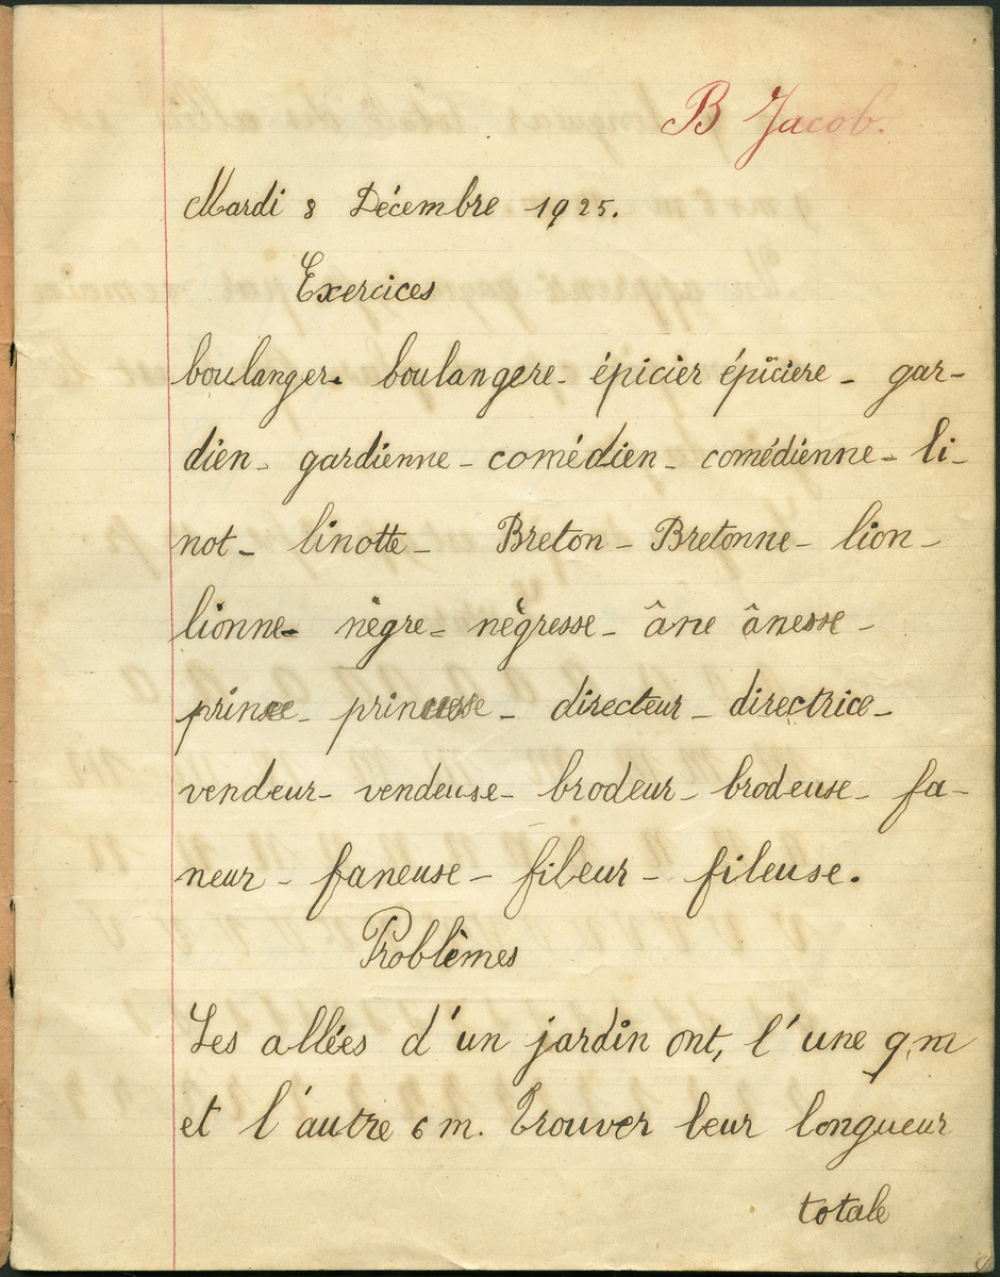 B Jacob.
Mardi 8 Décembre 1925.
Exercices
boulanger - boulangere - épicièr épicière - gar-
dien - gardienne - comédien - comédienne - li-
not - linotte - Breton - Bretonne - lion -
lionne - nègre - nègresse - âne ânesse -
prince - princesse - directeur - directrice -
vendeur - vendeuse - brodeur - brodeuse - fa-
neur - faneuse - fileur - fileuse.
Problèmes
Les allées d'un jardin ont, l'une 9 m
et l'autre 6 m. Trouver leur longueur
totale